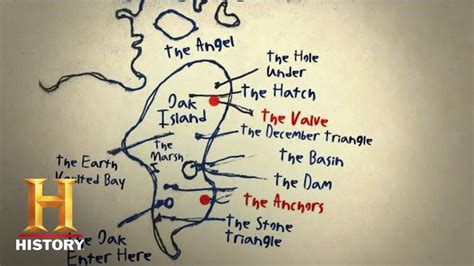 the Angel
the Hole
Under
the Hatch
Oak
Island
the Valve
the December Triangle
the
Marsh
the Basin
the Earth
Bay
the Dam
the Anchors
the Stone
Triangle
Oak
Enter Here
H
HISTORY